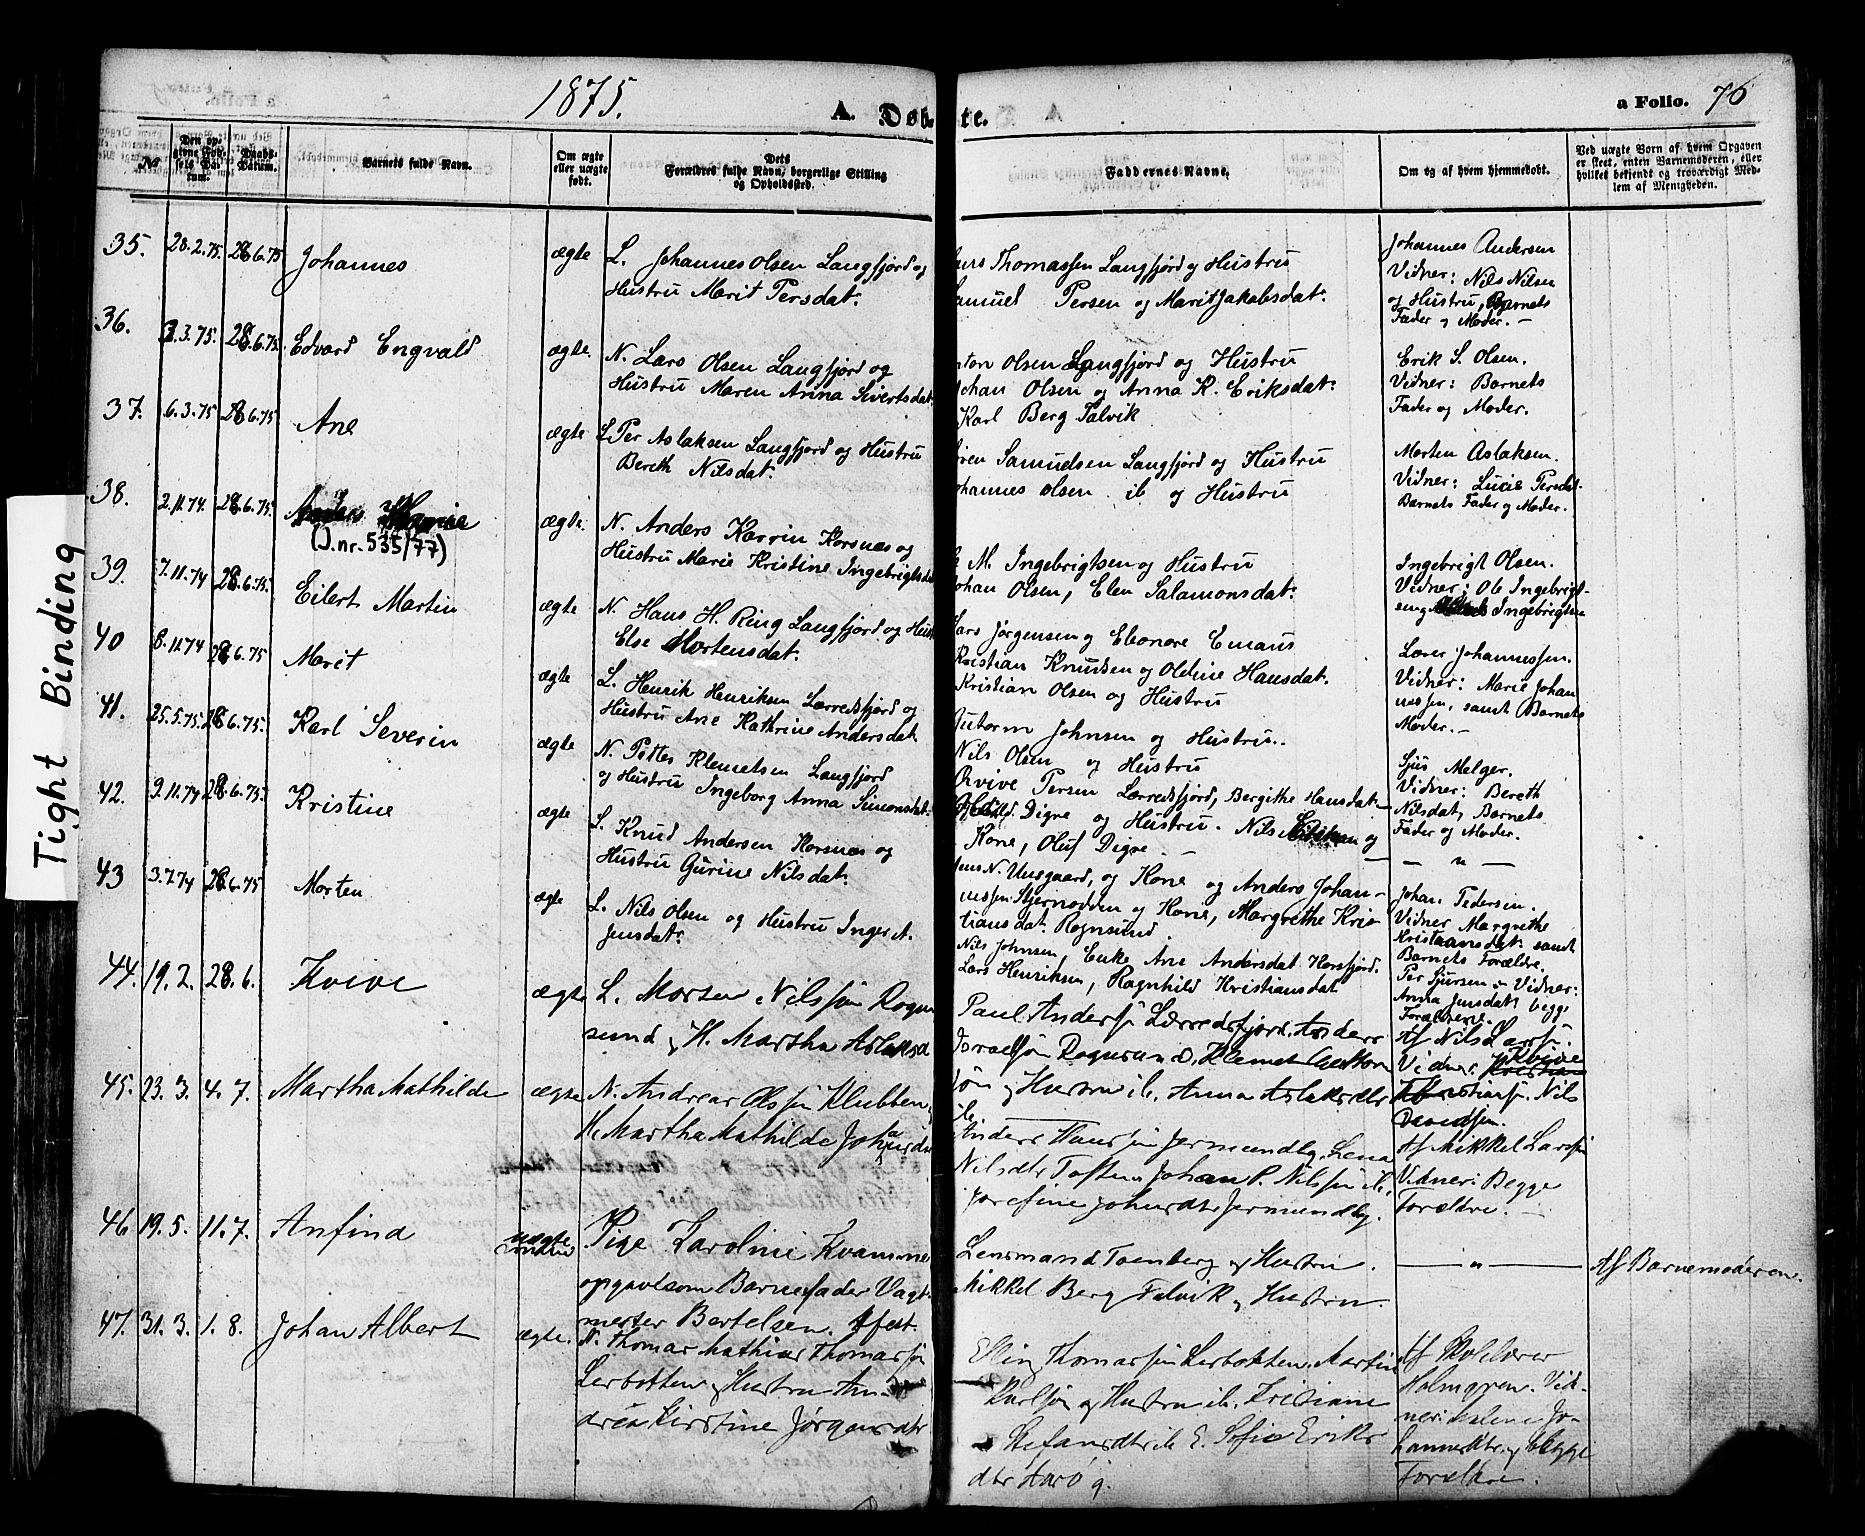 1875.
A. Døbte.
a Folio. 76
Tight Binding
No
Den opgivne Fødsels Datum.
Daabs-Datum.
Barnets fulde Navn.
Om ægte eller uægte født.
Dets Forældres fulde Navn, borgerlige Stilling og Opholdssted.
Faddernes Navne.
Om og af hvem hjemmedøbt.
Ved uægte Børn af hvem Opgaven er skeet, enten Barnemoderen, eller hvilket bekjendt og troværdigt Medlem af Menigheden.
35. 28.2.75. 28.6.75 Johannes ægte
L. Johannes Olsen Langfjord og
Hustru Marit Persdat.
Thomassen Langfjord og Hustru
Persen og Marit Jakobsdat.
Johannes Andersen
Vidner: Nils Nilsen
og Hustru, Barnets
Fader og Moder. –
36. 3.3.75. 28.6.75. Edvard Engvald ægte.
N. Lars Olsen Langfjord og
Hustru Maren Anna Sivertsdat.
Olsen Langfjord og Hustru
Olsen og Anna K. Eriksdat.
Karl Berg Talvik
Erik S. Olsen.
Vidner: Barnets
Fader og Moder.
37. 6.3.75 28.6.75 Ane ægte
L. Per Aslaksen Langfjord og Hustru
Bereth Nilsdat.
Samuelsen Langfjord og Hustru
Olsen ib og Hustru
Morten Aslaksen.
Vidner: Lucie Persdat.
Barnets Fader og Moder.
38. 2.11.74. 28.6.75.
(J.nr. 535/77)
ægte
N. Anders Karrin Korsnes og
Hustru Marie Kristine Ingebrigtsdat
M. Ingebrigtsen og Hustru
Johan Olsen, Elen Salamonsdat.
Ingebrigt Olsen.
Vidner: Ole Ingebrigt-
sen og Ingebrigtsen
39. 7.11.74 28.6.75. Eilert Martin ægte
N. Hans H. Ring Langfjord og Hust
Else Mortensdat.
Lars Jørgensen og Eleonore Emaus
Kristian Knudsen og Oldine Hansdat.
Kristian Olsen og Hustru
Lærer Johannessen.
Vidner: Marie Johan
nessen, samt Barnets
Moder. –
40 8.11.74 28.6.75 Marit ægte
L. Henrik Henriksen Lærredsfjord og
Hustru Ane Kathrine Andersdat.
Gutorm Johnsen og Hustru.
Nils Olsen og Hustru
Sjus Melger.
Vidner: Bereth
Nilsdat, Barnets
Fader og Moder.
41. 25.5.75 28.6.75. Karl Severin ægte
N. Pettes Klemetsen Langfjord
og Hustru Ingeborg Anna Simonsdat.
Persen Lærredsfjord, Bergithe Hansdat –
Digre og Hustru. Nils og
Kone, Oluf Digre –
— " —
42. 9.11.74 28.6.75. Kristine ægte
L. Knud Andersen Korsnes og
Hustru Gurine Nilsdat.
N. Unsgaard, og Kone og Anders Johan-
nessen Stjernodden og Kone, Margrethe Kris
tiansdat. Rognsund.
Johan Pedersen.
Vidner Margrethe
Kristiansdat. samt
Barnets Forældre.
43 3.7.74 28.6.75 Morten ægte
L. Nils Olsen og Hustru Inger A.
Jensdat.
Nils Johnsen, Enke Ane Andersdat. Korsfjord.
Lars Henriksen, Ragnhild Kristiansdat
Per Sjursen – Vidner:
Anna Jensdat. begge
Forældrene.
44. 19.2. 28.6. Kvive ægte
L. Morten Nilssøn Rogn
sund og H. Martha Aslaksd
Paul Anderss. Lærredsfjord, Anders
Israelsøn Rognsund, Klemet
søn og Hustru ib. Anna Aslaksdtr
ib.
Af Nils Larss.
Vidner: Kvive
Kristianss. Nils
Davidsen.
45. 23.3. 4.7. Martha Mathilde ægte
N. Andreas Olssøn Klubben,
H. Martha Mathilde Johansd
Anders Hanssøn Jermundby, Lena
Nilsdtr Toften, Johan P. Nilssøn ib,
Josefine Johnsdtr Jermundby.
Af Mikkel Larssøn
Vidner: Begge
Forældre.
46 19.5. 11.7. Anfind uægte
Pige Karoline Kvamme
opgav som Barnefader Vagt-
mester Bertelsen. Afest.
Lensmand Tomberg og Hustru.
Mikkel Berg Talvik og Hustru.
— " —
Af Barnemoderen.
47. 31.3. 1.8. Johan Albert ægte.
N. Thomas Mathias Thomassøn
Lerbotten og Hustru An-
drea Kirstine Jørgensdtr
Elling Thomassøn Lerbotten, Martin
Karlsøn og Hustru ib. Kristiane
Stefansdtr ib. E. Sofie Eriks
dtr Aarø g.
Af Skolelærer
Holmgren. Vid-
ner: Malene Jo-
hannesdtr. og begge
Forældre.